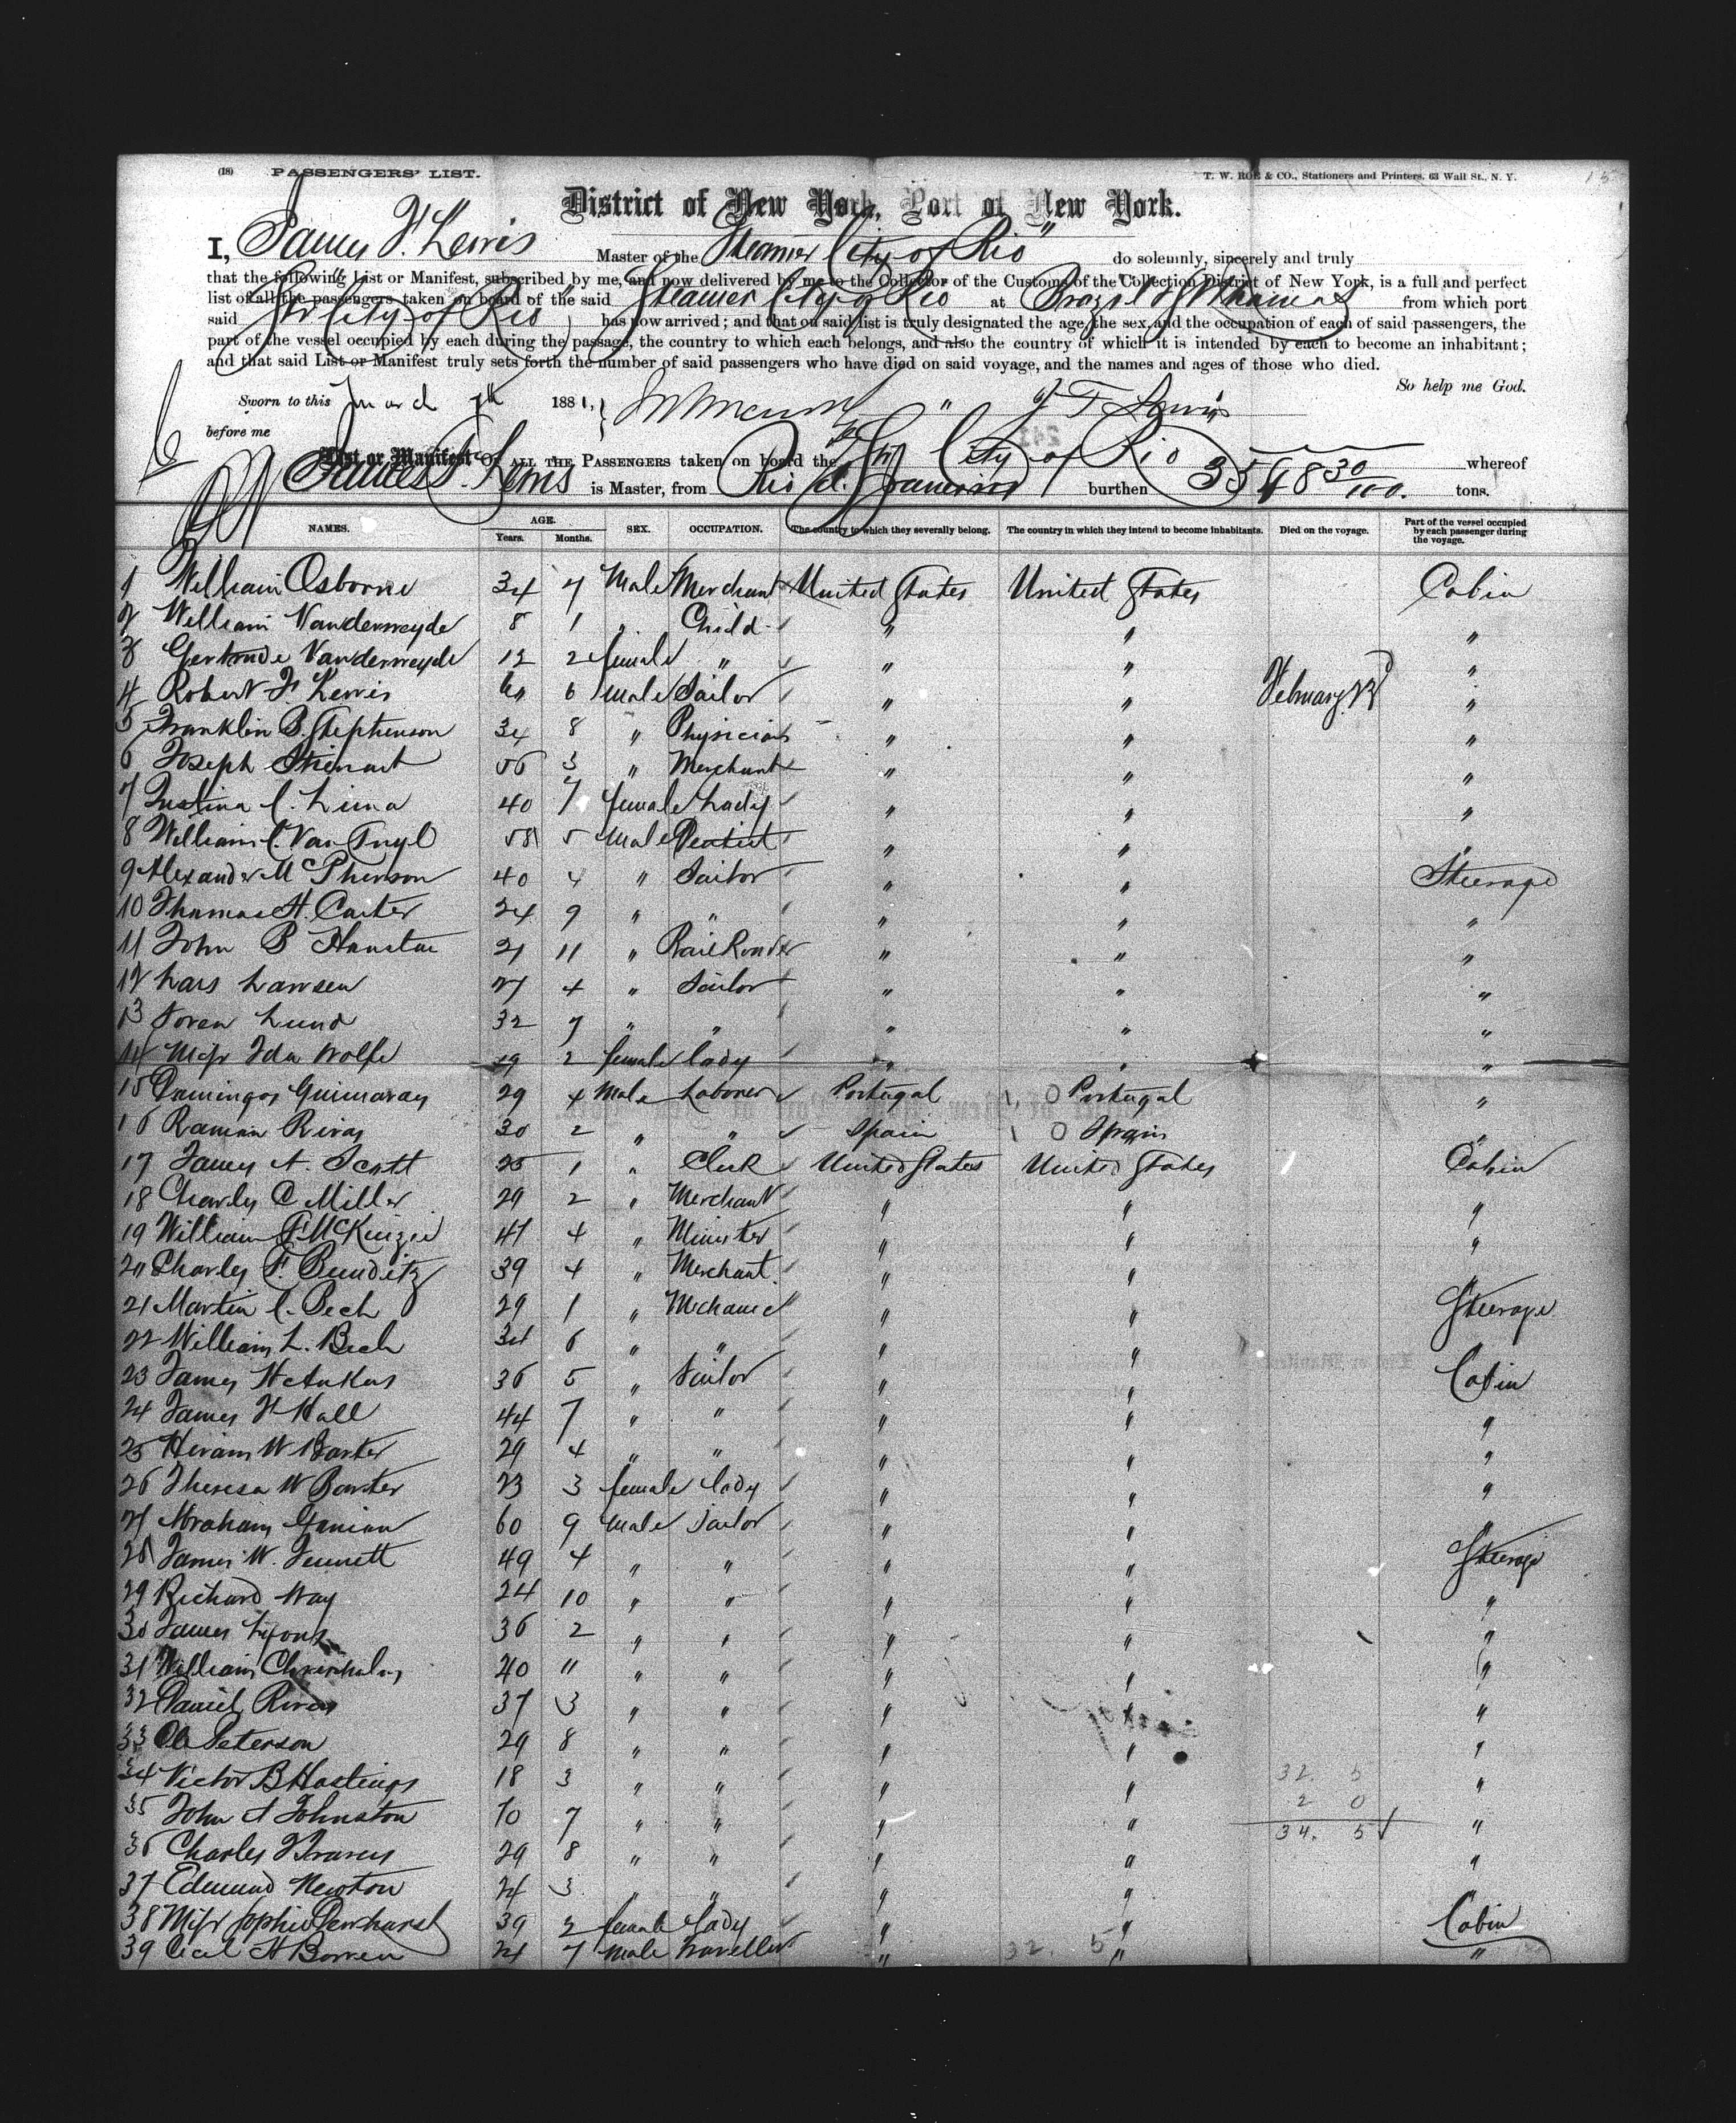 (18) PASSENGERS' LIST. T. W. ROE & CO., Stationers and Printers, 63 Wall St., N. Y. 15
District of New York, Port of New York.
I, James F. Lewis Master of the Steamer "City of Rio" do solemnly, sincerely and truly
that the following List or Manifest, subscribed by me, and now delivered by me to the Collector of the Customs of the Collection District of New York, is a full and perfect
list of all the passengers taken on board of the said Steamer City of Rio at Brazil & St Thomas from which port
said Str "City of Rio" has now arrived; and that on said list is truly designated the age, the sex, and the occupation of each of said passengers, the
part of the vessel occupied by each during the passage, the country to which each belongs, and also the country of which it is intended by each to become an inhabitant;
and that said List or Manifest truly sets forth the number of said passengers who have died on said voyage, and the names and ages of those who died.
So help me God.
Sworn to this March 7th 1881, J. F. Lewis
before me
241
List or Manifest OF ALL THE PASSENGERS taken on board the Str City of Rio whereof
James F. Lewis is Master, from Rio d. Janeiro burthen 3548 30/100. tons.
NAMES. AGE. Years. Months. SEX. OCCUPATION. The country to which they severally belong. The country in which they intend to become inhabitants. Died on the voyage. Part of the vessel occupied by each passenger during the voyage.
1 William Osborne 34 7 Male Merchant United States United States Cabin
2 William Vanderweyde 8 1 " Child " " "
3 Gertrude Vanderweyde 12 2 female " " " "
4 Robert F. Lewis 60 6 male Sailor " " February 23 "
5 Franklin B. Stephenson 34 8 " Physician " " "
6 Joseph 56 3 " Merchant " " "
7 Justina C. Lima 40 7 female Lady " " "
8 William C. Van Tuyl 58 5 male Dentist " " "
9 Alexander McPherson 40 4 " Sailor " " Steerage
10 Thomas H. Carter 24 9 " " " " "
11 John B 21 11 " RailRoader " " "
12 Lars Lawsen 27 4 " Sailor " " "
13 Soren Lund 32 7 " " " " "
14 Miss Ida Wolfe 19 2 female lady " " "
15 Domingos Guimaray 29 4 Male Laborer Portugal 1, 0 Portugal "
16 Ramon Rivas 30 2 " " Spain 1 0 Spain "
17 James A. Scott 25 1 " Clerk United States United States Cabin
18 Charles C Miller 29 2 " Merchant " " "
19 William F McKinzie 47 4 " Minister " " "
20 Charles F. Bunditz 39 4 " Merchant. " " "
21 Martin C. Bech 29 1 " Mechanic " " Steerage
22 William L. Bech 34 6 " " " "
23 James H Ankus 36 5 " Sailor " " Cabin
24 James F Hall 44 7 " " " " "
25 Hiram W Baxter 29 4 " " " " "
26 Theresa W Baxter 23 3 female lady " " "
27 Abraham 60 9 male Sailor " " "
28 James W. Jewett 49 4 " " " " Steerage
29 Richard Way 24 10 " " " " "
30 James Lyons 36 2 " " " " "
31 William Chrisholm 40 " " " " " "
32 Daniel Rivers 37 3 " " " " "
33 Ole Peterson 29 8 " " " " "
34 Victor B Hastings 18 3 " " " " 32. 5 "
35 John A Johnston 70 7 " " " " 2 0 "
36 Charles Travers 29 8 " " " " 34. 5 "
37 Edmund Newton 24 3 " " " "
38 Miss Sophie Dewhurst 39 2 female lady " " Cabin
39 Cecil H Bowen 24 7 male traveller " 32. 5 " "